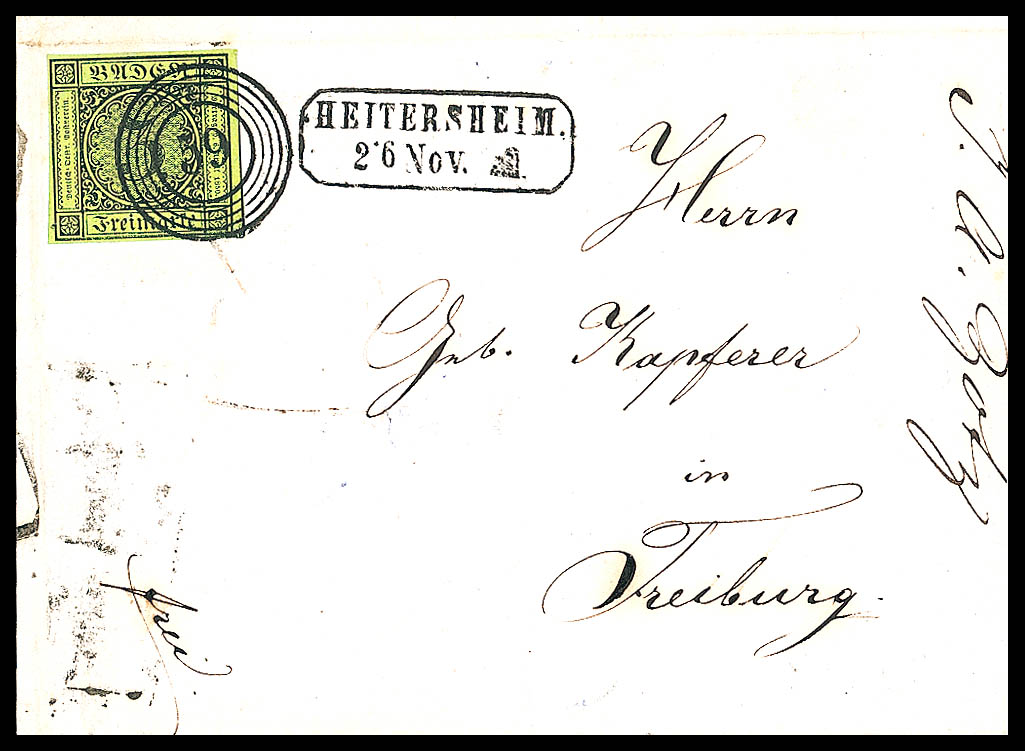 BADEN
Freimarke
HEITERSHEIM.
26 Nov.
Herrn
Geb. Kapferer
in
Freiburg.
frei